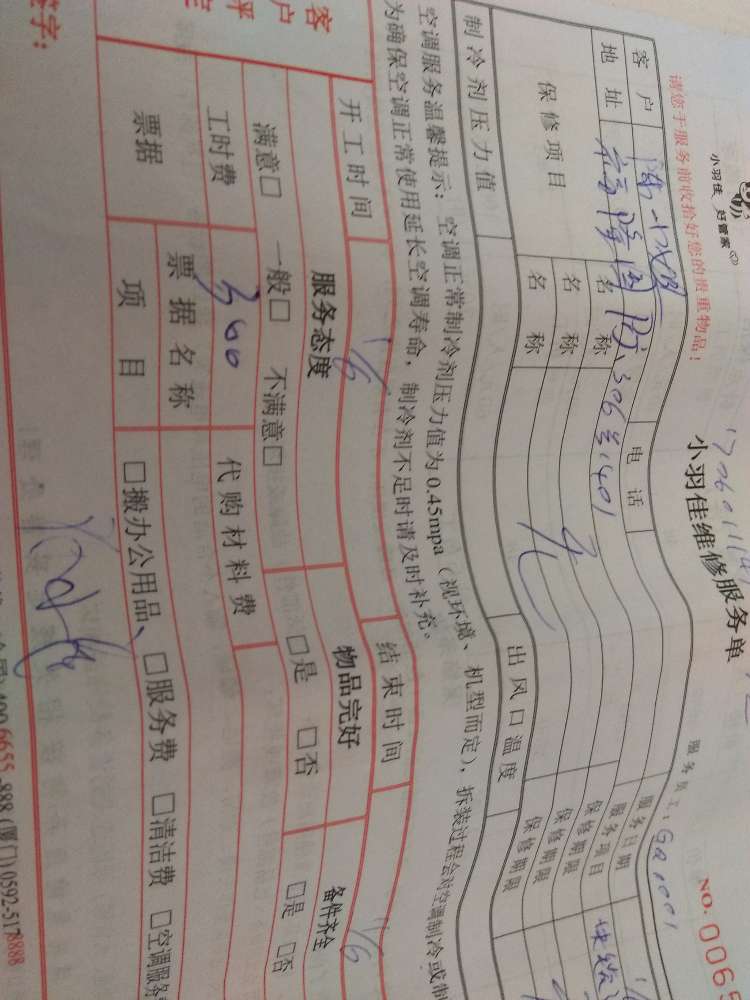 小羽佳 好管家
请您于服务前收拾好您的贵重物品!
小羽佳维修服务单
服务员工: GQ1001
NO. 0065
客户
电话
服务日期
地址 306号1401
服务项目
保修项目 名称 保修期限
名称 保修期限
名称
制冷剂压力值 出风口温度
空调服务温馨提示: 空调正常制冷剂压力值为0.45mpa (视环境、机型而定), 拆装过程会对空调制冷或制
为确保空调正常使用延长空调寿命, 制冷剂不足时请及时补充。
开工时间 1/6 结束时间 1/6
客户评定
服务态度 物品完好 备件齐全
满意□ 一般□ 不满意□ □是 □否 □是 □否
工时费 300 代购材料费
票据 票据名称
项目 □搬办公用品、 □服务费 □清洁费 □空调服务
签字:
400 6655-888 (厦门) 0592-5178888